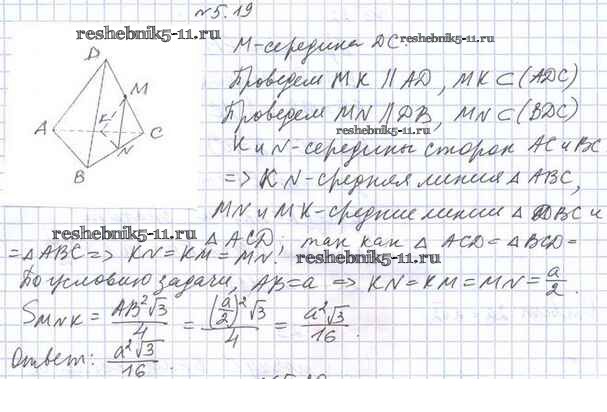 №5.19
reshebnik5-11.ru
M-середина DC.
reshebnik5-11.ru
Проведем MK || AD, MK ⊂ (ADC)
Проведем MN || DB, MN ⊂ (BDC)
reshebnik5-11.ru
K и N-середины сторон AC и BC
=> KN-средняя линия △ ABC,
MN и MK-средние линии △ DBC и
reshebnik5-11.ru
△ ACD; так как △ ACD = △ BCD =
= △ ABC => KN = KM = MN.
reshebnik5-11.ru
По условию задачи, AB = a => KN = KM = MN = a/2.
S MNK = AB²√3/4 = (a/2)²√3/4 = a²√3/16.
reshebnik5-11.ru
Ответ: a²√3/16.
D
M
A
K
C
N
B